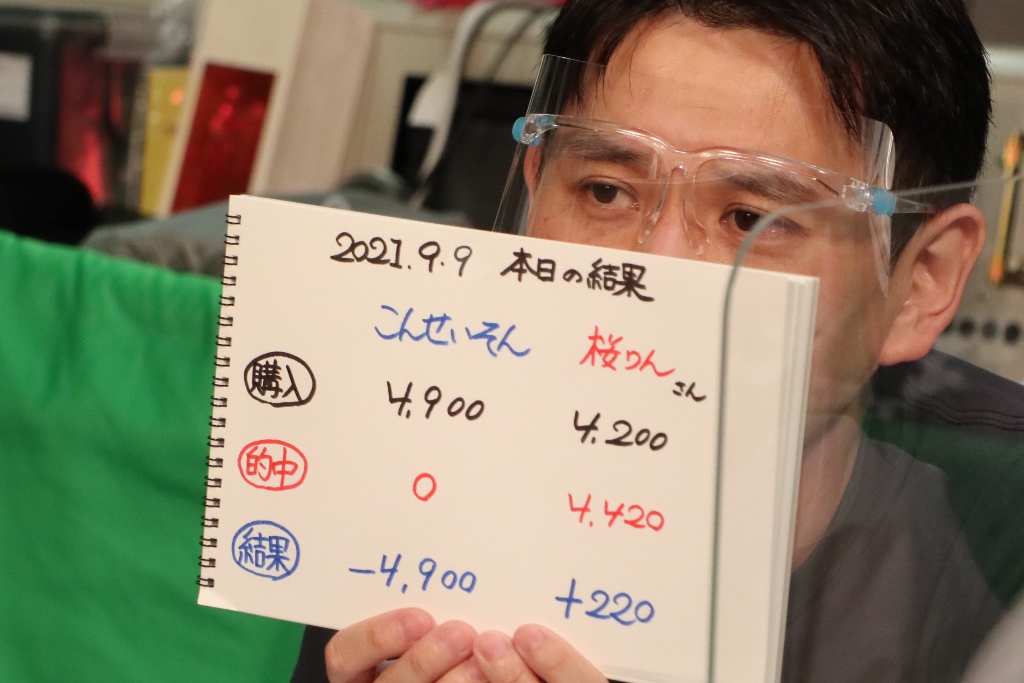 2021.9.9 本日の結果
こんせいそん 桜りんさん
購入 4,900 4,200
的中 0 4,420
結果 -4,900 +220